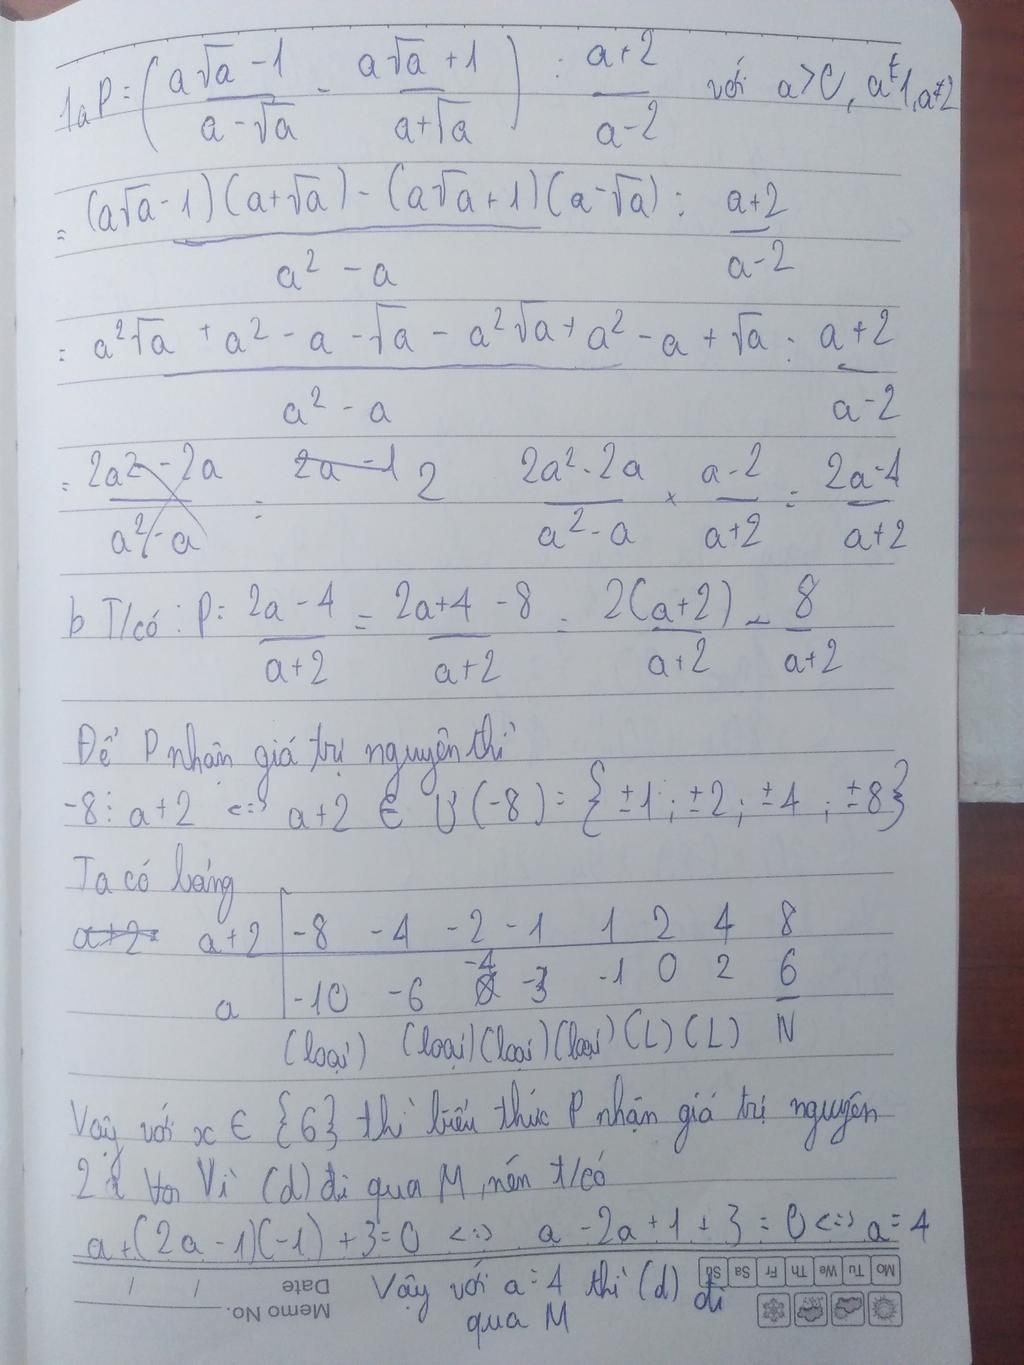 1a P = (a√a - 1 / a - √a - a√a + 1 / a + √a) : a+2 / a-2 với a>0, a≠1, a≠2
= (a√a - 1)(a+√a) - (a√a + 1)(a - √a) / a² - a : a+2 / a-2
= a²√a + a² - a - √a - a²√a + a² - a + √a / a² - a : a+2 / a-2
= 2a² - 2a / a² - a = 2a - 1 2 2a² - 2a / a² - a × a-2 / a+2 = 2a-4 / a+2
b T/có : P = 2a - 4 / a+2 = 2a+4 - 8 / a+2 = 2(a+2) / a+2 - 8 / a+2
Để P nhận giá trị nguyên thì
-8 ⋮ a+2 <=> a+2 ∈ Ư(-8) = {±1 ; ±2 ; ±4 ; ±8}
Ta có bảng
a+2 a+2 -8 -4 -2 -1 1 2 4 8
a -10 -6 -4 -3 -1 0 2 6
(loại) (loại) (loại) (loại) (L) (L) N
Vậy với x ∈ {6} thì biểu thức P nhận giá trị nguyên
2 Vì (d) đi qua M, nên t/có
a + (2a - 1)(-1) + 3 = 0 <=> a - 2a + 1 + 3 = 0 <=> a = 4
Vậy với a = 4 thì (d) đi
qua M
Memo No.
Date / /
Mo Tu We Th Fr Sa Su